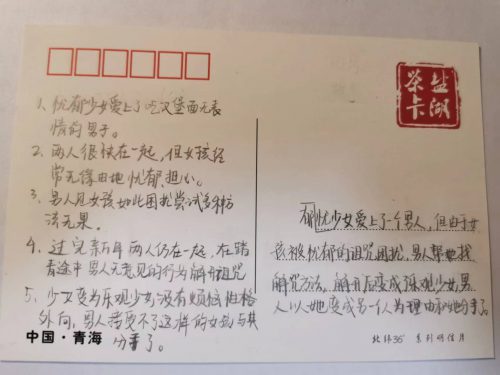 茶卡盐湖
1、忧郁少女爱上了吃汉堡面无表
情的男子。
2、两人很快在一起，但女孩经
常无缘由地忧郁、担心。
3、男人见女孩如此困扰尝试多种方
法无果。
4、过完新年两人仍在一起，在踏
青途中男人无意见的行为解开诅咒
5、少女变为乐观少女没有烦恼性格
外向，男人接受不了这样的女孩与其
分手了。
郁忧少女爱上了一个男人，但由于女
孩被忧郁的诅咒困扰，男人帮她找
解咒方法。解开后变成乐观少女，男
人以她变成另一个人为理由和她分手了。
中国·青海
北纬36° 系列明信片